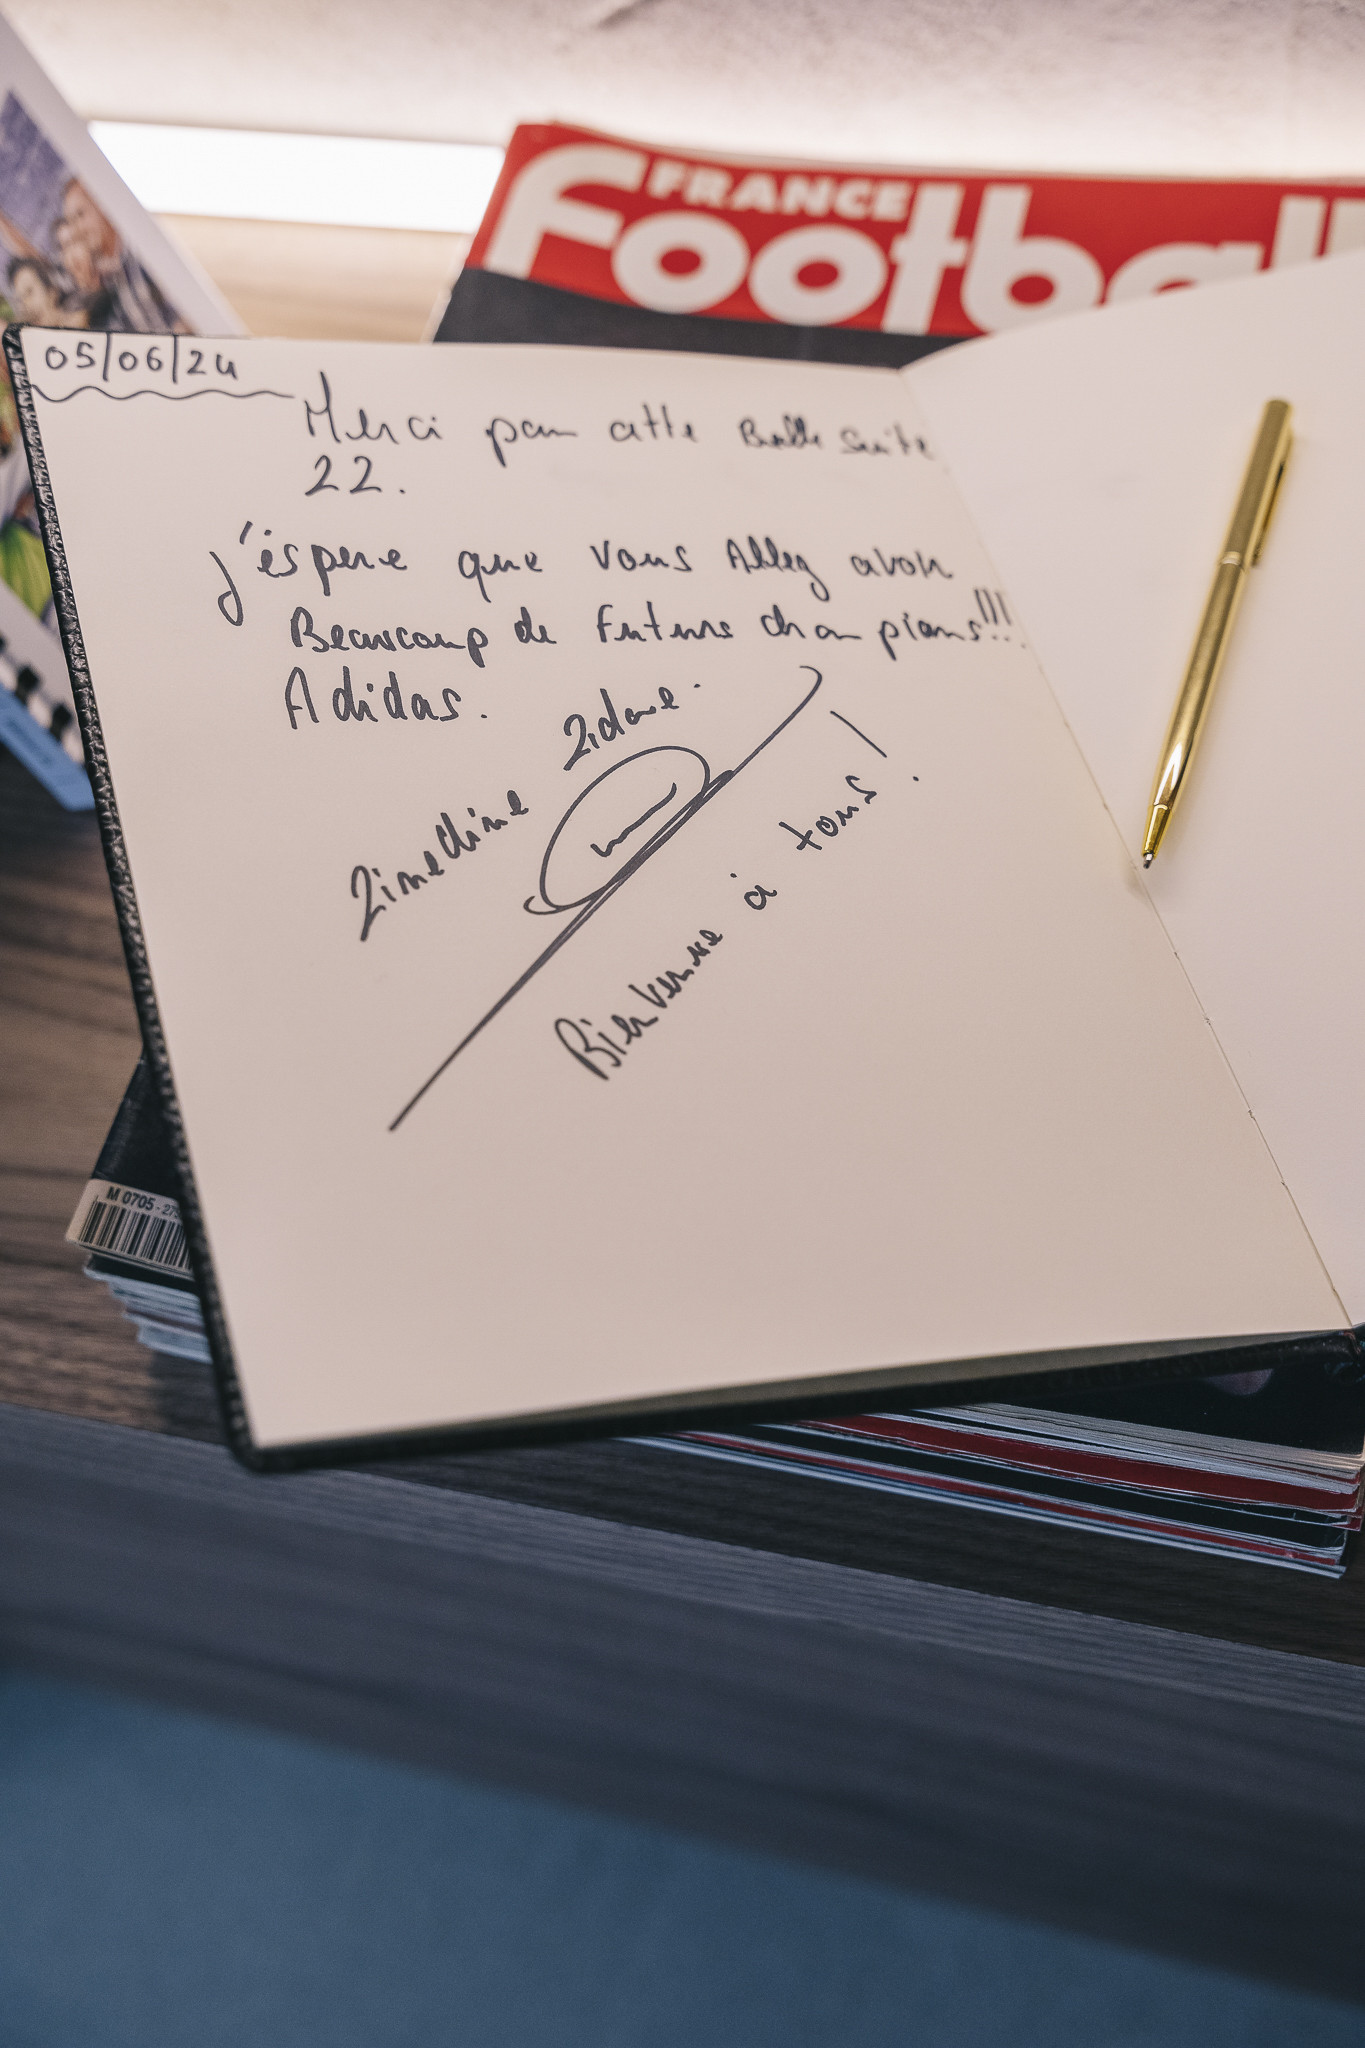 FRANCE
Football
05/06/24
Merci pour cette Belle suite
22.
j'éspere que vous Allez avoir
Beaucoup de futurs champions!!!
Adidas.
Zinedine Zidane.
Bienvenue à tous!
M 0705 - 27